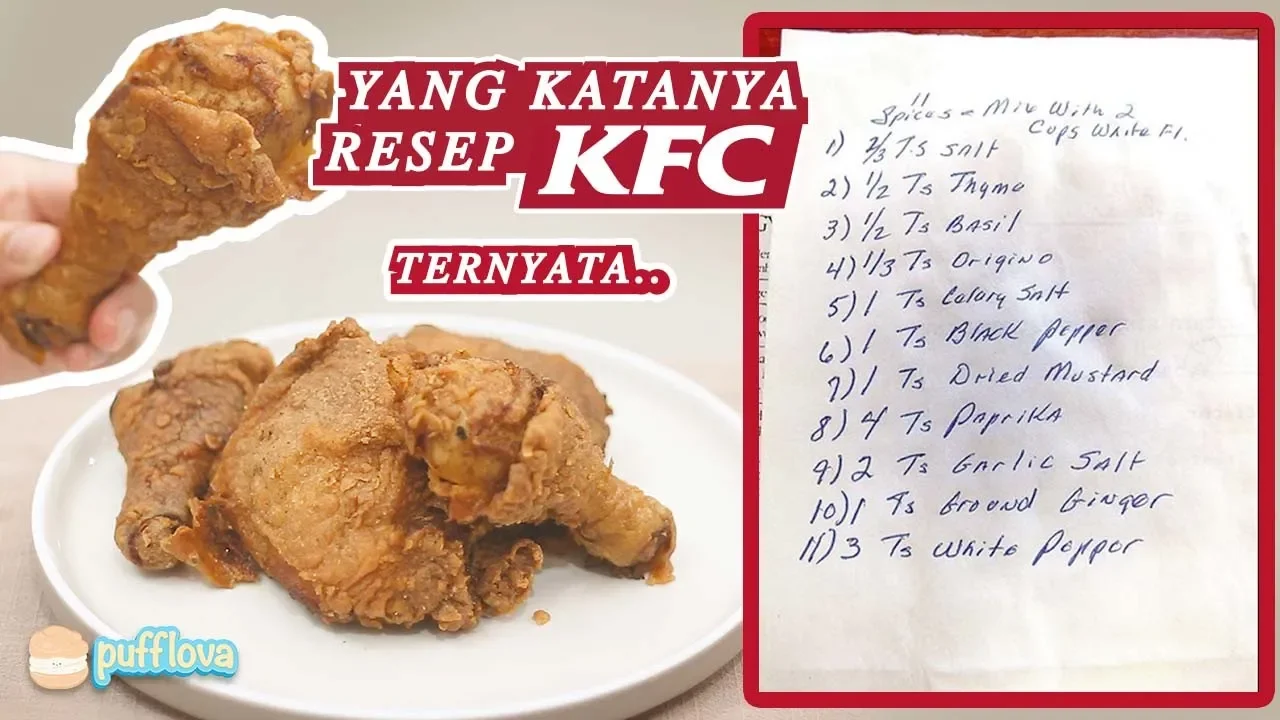 YANG KATANYA
RESEP KFC
TERNYATA..
11
Spices - Mix With 2
Cups White Fl.
1) 2/3 Ts SALT
2) 1/2 Ts Thyme
3) 1/2 Ts BASIL
4) 1/3 Ts Origino
5) 1 Ts Celary Salt
6) 1 Ts BLACK Pepper
7) 1 Ts Dried Mustard
8) 4 Ts PAPriKA
9) 2 Ts GArlic SALT
10) 1 Ts Ground Ginger
11) 3 Ts White Pepper
pufflova